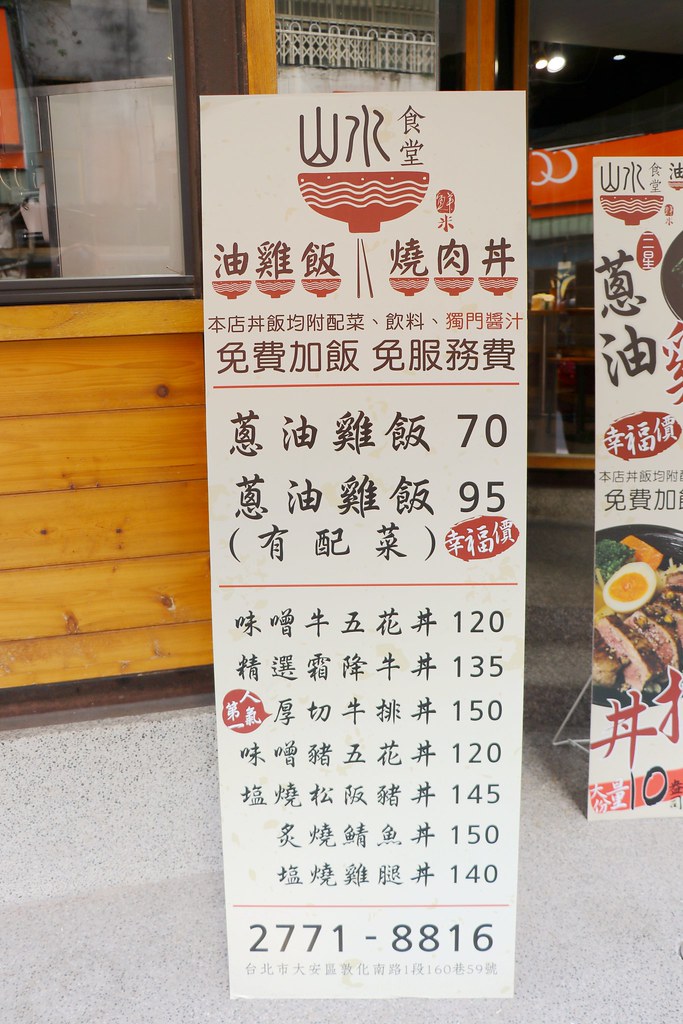 山水食堂
鮮米
油雞飯 燒肉丼
本店丼飯均附配菜、飲料、獨門醬汁
免費加飯 免服務費
蔥油雞飯 70
蔥油雞飯 95
(有配菜)
幸福價
味噌牛五花丼 120
精選霜降牛丼 135
人氣第一
厚切牛排丼 150
味噌豬五花丼 120
塩燒松阪豬丼 145
炙燒鯖魚丼 150
塩燒雞腿丼 140
2771-8816
台北市大安區敦化南路1段160巷59號
山水食堂
油
鮮米
三星
蔥油
雞
幸福價
本店丼飯均附
免費加飯
丼
大份量10